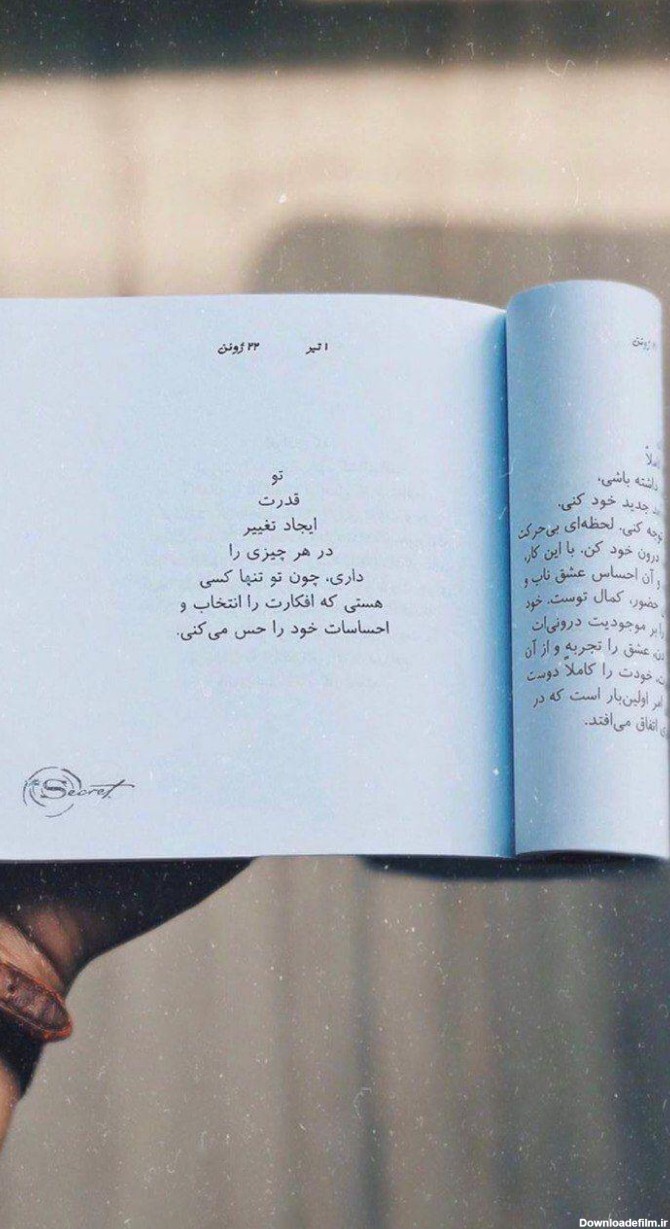 ۱ تیر ۲۲ ژوئن
تو
قدرت
ایجاد تغییر
در هر چیزی را
داری، چون تو تنها کسی
هستی که افکارت را انتخاب و
احساسات خود را حس می‌کنی.
Secret
داشته باشی،
جدید خود کنی.
توجه کنی. لحظه‌ای بی‌حرکت
درون خود کن. با این کار،
و آن احساس عشق ناب و
حضور، کمال توست. خود
بر موجودیت درونی‌ات
عشق را تجربه و از آن
خودت را کاملاً دوست
اولین‌بار است که در
اتفاق می‌افتد.
Downloadefilm.ir